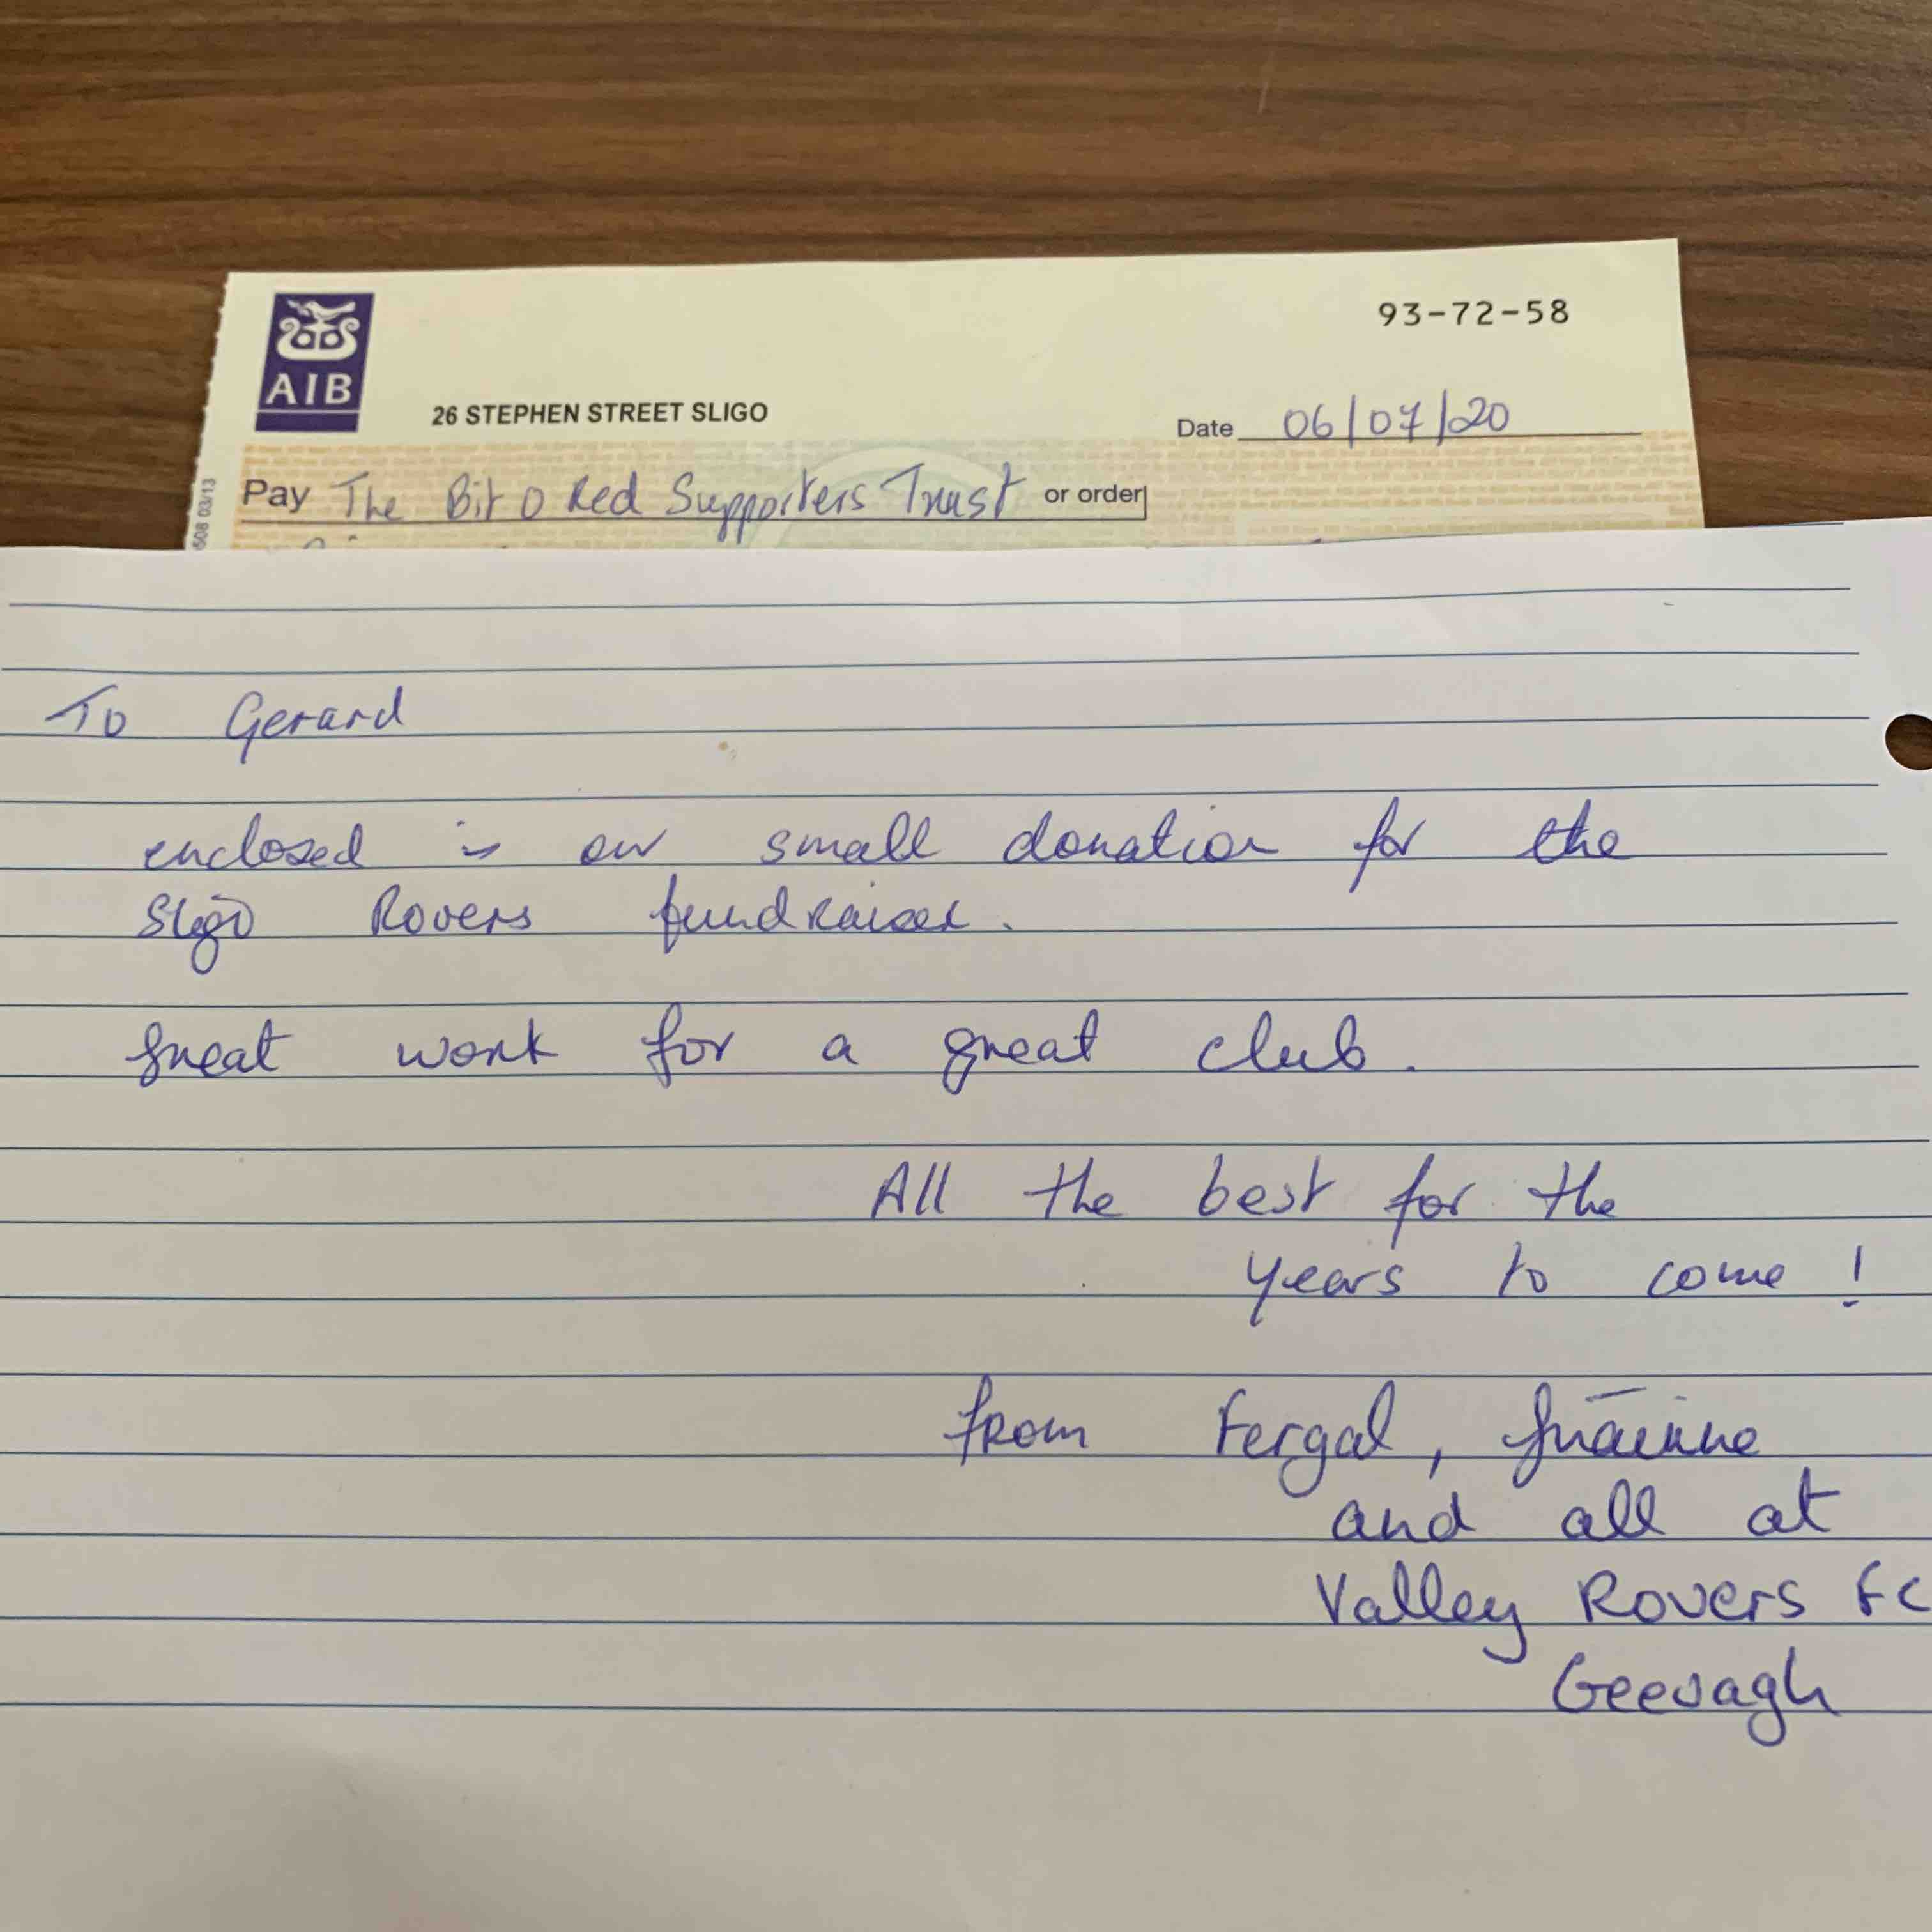 AIB
93-72-58
26 STEPHEN STREET SLIGO
Date 06/07/20
Pay The Bit O Red Supporters Trust or order
508 03/13
To Gerard
enclosed is our small donation for the
Sligo Rovers fundraiser.
Great work for a great club.
All the best for the
years to come!
from Fergal, Gráinne
and all at
Valley Rovers FC
Geevagh